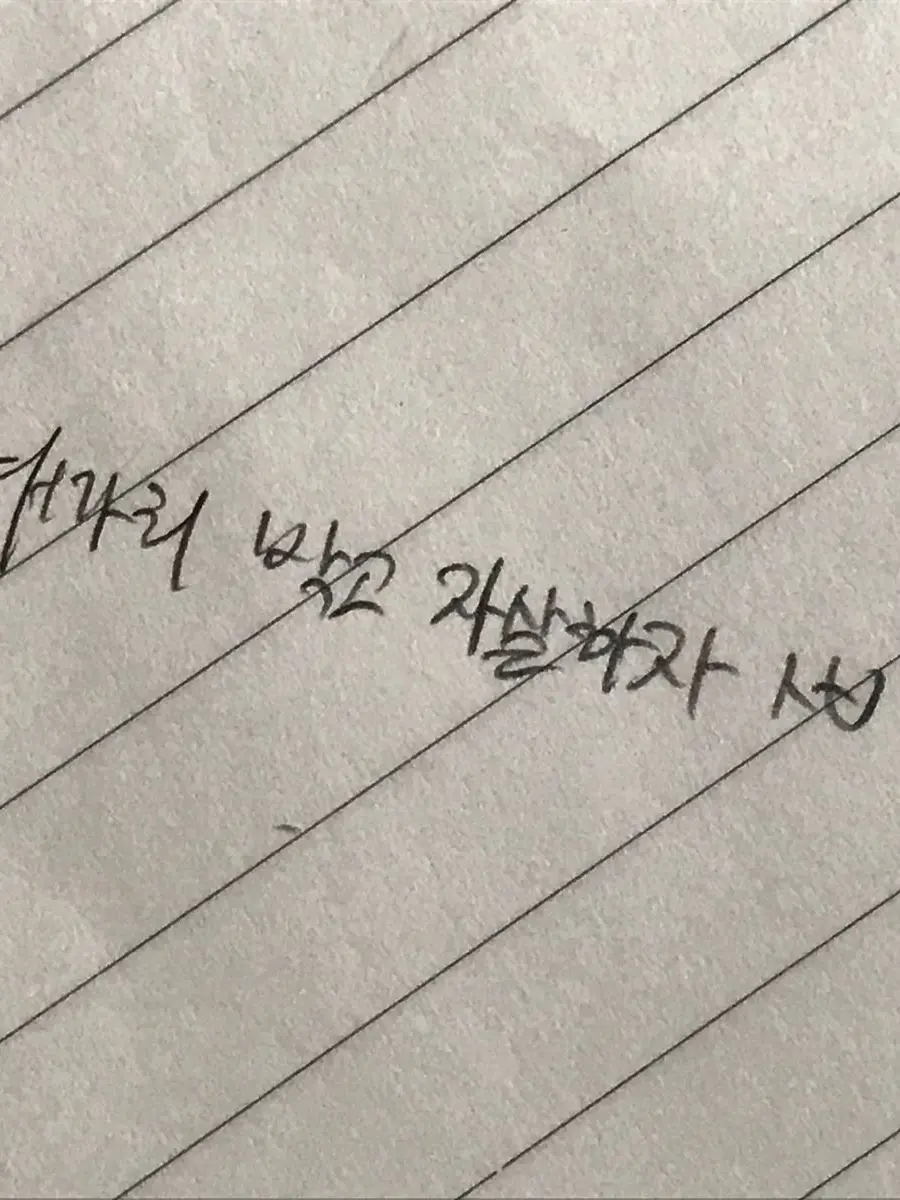 대가리 박고 자살하자